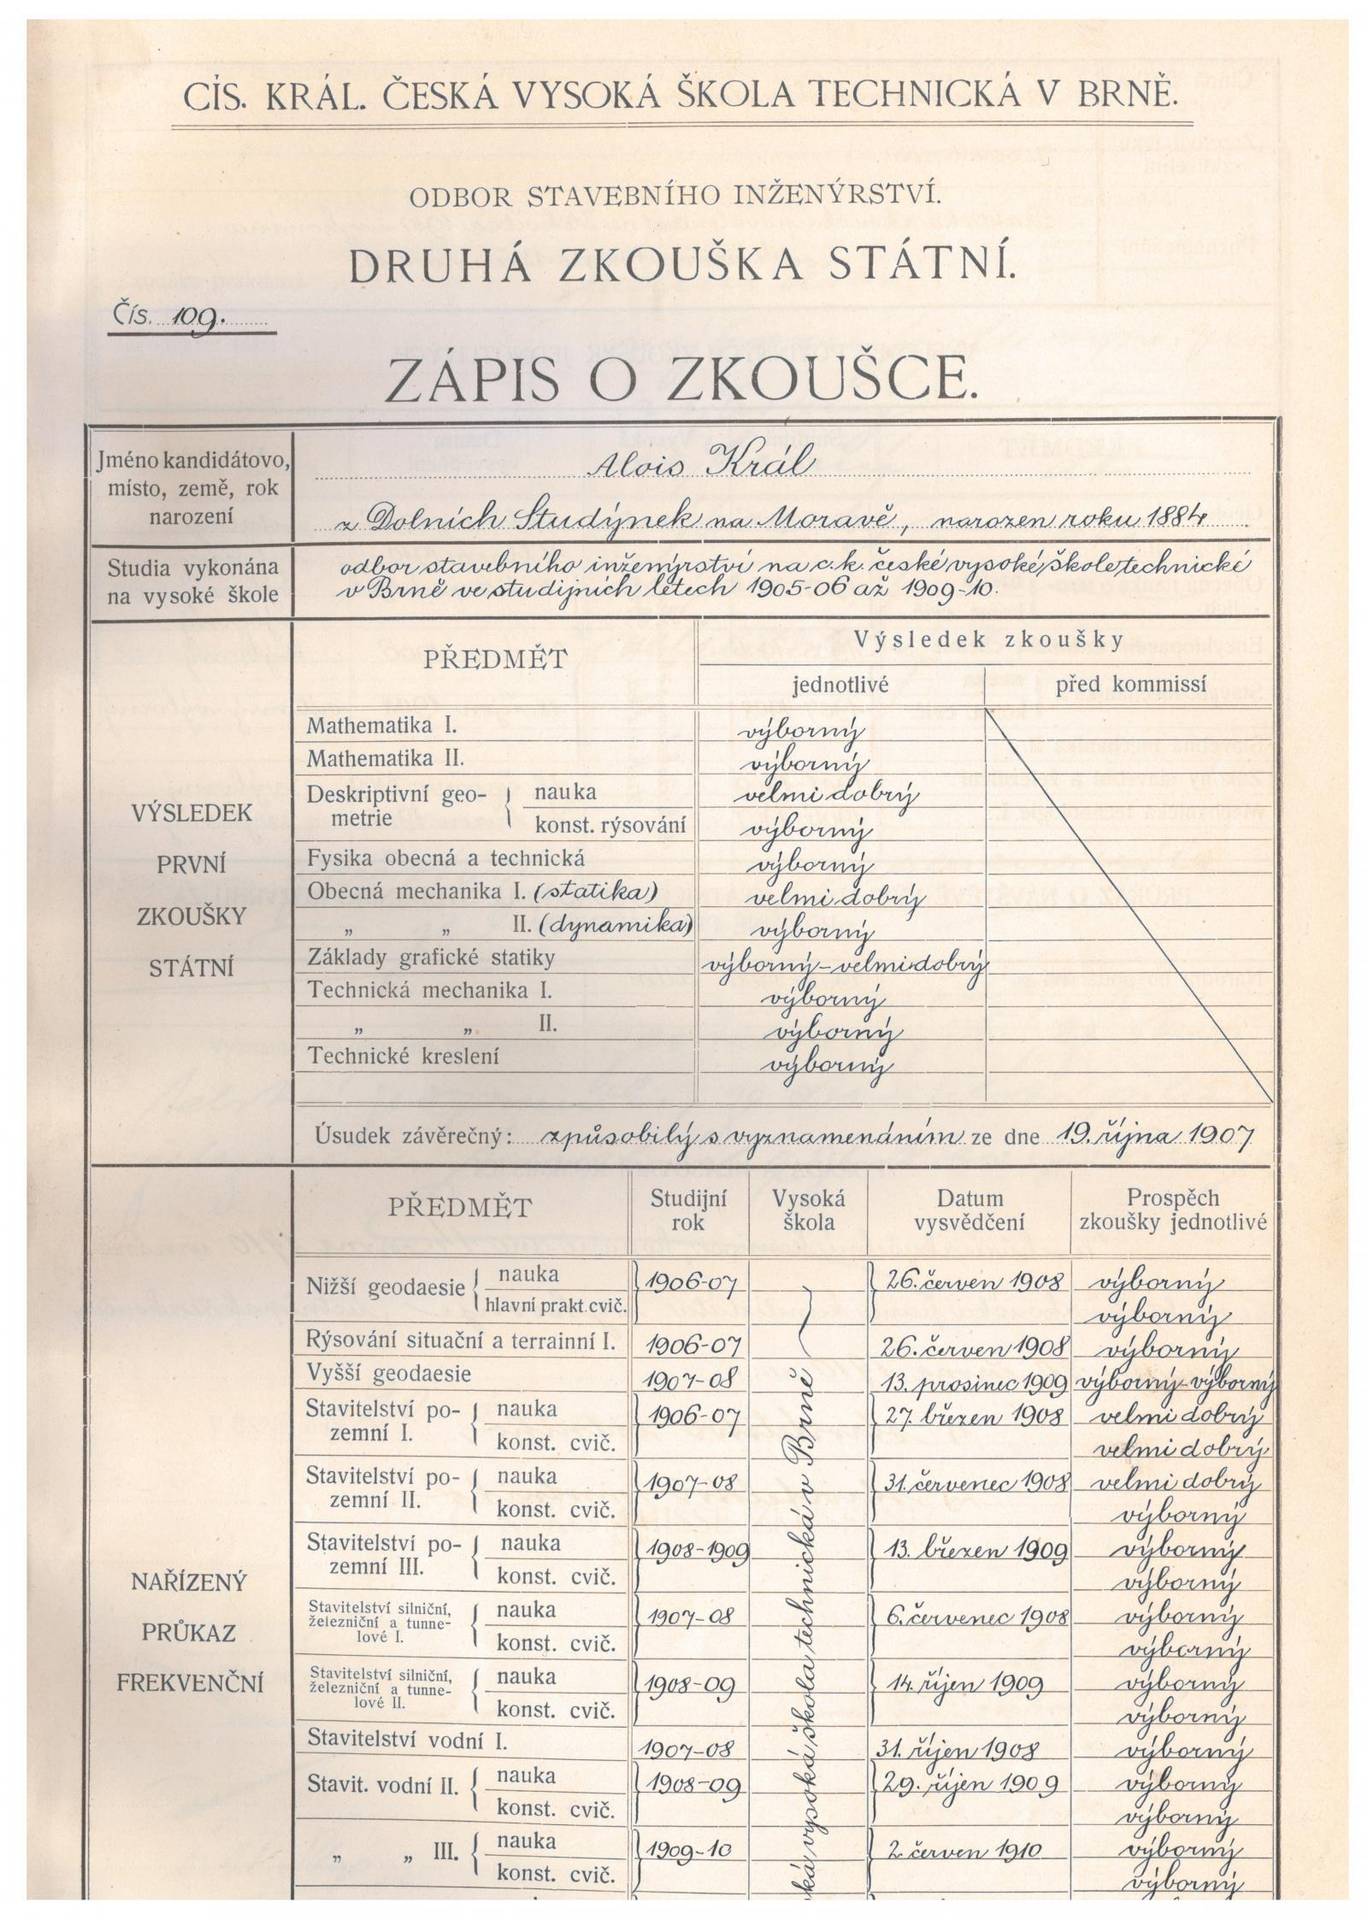 CÍS. KRÁL. ČESKÁ VYSOKÁ ŠKOLA TECHNICKÁ V BRNĚ.
ODBOR STAVEBNÍHO INŽENÝRSTVÍ.
DRUHÁ ZKOUŠKA STÁTNÍ.
Čís. 109.
ZÁPIS O ZKOUŠCE.
Jméno kandidátovo, místo, země, rok narození
Alois Král
z Dolních Studýnek na Moravě, narozen roku 1884
Studia vykonána na vysoké škole
odbor stavebního inženýrství na c.k. české vysoké škole technické
v Brně ve studijních létech 1905-06 až 1909-10.
VÝSLEDEK PRVNÍ ZKOUŠKY STÁTNÍ
PŘEDMĚT Výsledek zkoušky
jednotlivé před kommissí
Mathematika I. výborný
Mathematika II. výborný
Deskriptivní geometrie nauka velmi dobrý
konst. rýsování výborný
Fysika obecná a technická výborný
Obecná mechanika I. (statika) velmi dobrý
„ „ II. (dynamika) výborný
Základy grafické statiky výborný-velmi dobrý
Technická mechanika I. výborný
„ „ II. výborný
Technické kreslení výborný
Úsudek závěrečný: způsobilý s vyznamenáním ze dne 19. října 1907
NAŘÍZENÝ PRŮKAZ FREKVENČNÍ
PŘEDMĚT Studijní rok Vysoká škola Datum vysvědčení Prospěch zkoušky jednotlivé
Nižší geodaesie nauka 1906-07 26. červen 1908 výborný
hlavní prakt. cvič. výborný
Rýsování situační a terrainní I. 1906-07 26. červen 1908 výborný
Vyšší geodaesie 1907-08 13. prosinec 1909 výborný-výborný
Stavitelství pozemní I. nauka 1906-07 27. březen 1908 velmi dobrý
konst. cvič. velmi dobrý
Stavitelství pozemní II. nauka 1907-08 31. červenec 1908 velmi dobrý
konst. cvič. výborný
Stavitelství pozemní III. nauka 1908-1909 13. březen 1909 výborný
konst. cvič. výborný
Stavitelství silniční, železniční a tunnelové I. nauka 1907-08 6. červenec 1908 výborný
konst. cvič. výborný
Stavitelství silniční, železniční a tunnelové II. nauka 1908-09 14. říjen 1909 výborný
konst. cvič. výborný
Stavitelství vodní I. 1907-08 31. říjen 1908 výborný
Stavit. vodní II. nauka 1908-09 29. říjen 1909 výborný
konst. cvič. výborný
„ „ III. nauka 1909-10 2. červen 1910 výborný
konst. cvič. výborný
ká vysoká škola technická v Brně